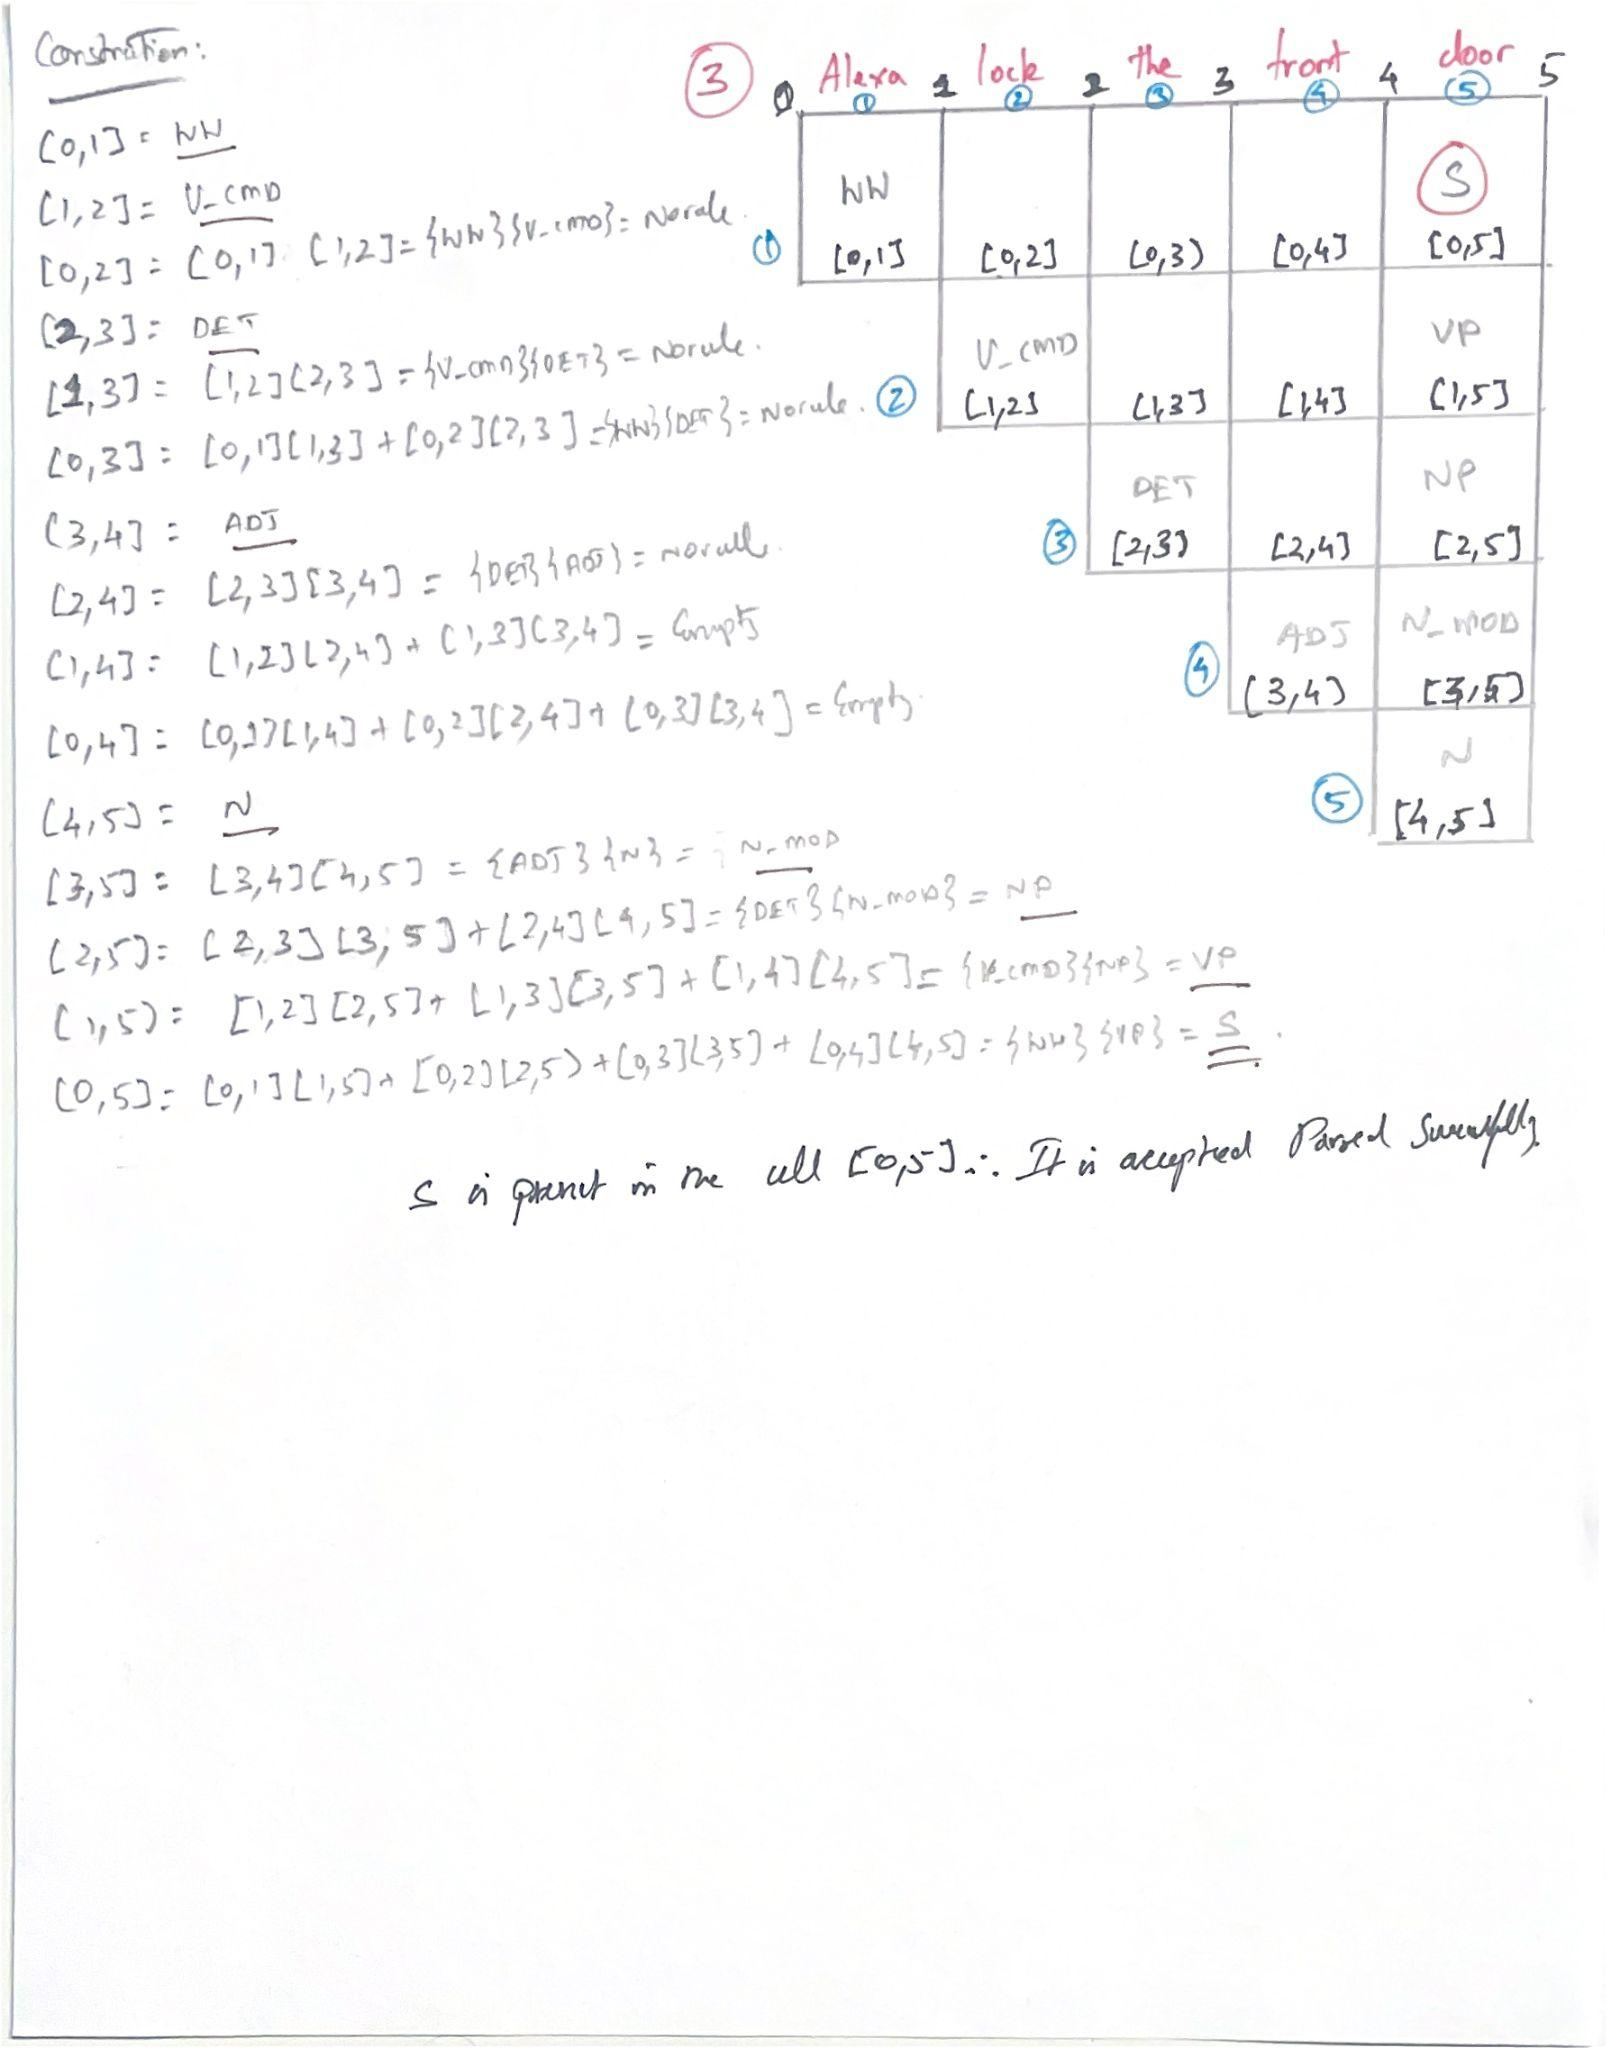 Constration:
[0,1] = WW
[1,2] = V_CMD
[0,2] = [0,1] [1,2] = {WW}{V-CMD} = No rule.
[2,3] = DET
[1,3] = [1,2][2,3] = {V-CMD}{DET} = No rule.
[0,3] = [0,1][1,3] + [0,2][2,3] = {WW}{DET} = No rule.
[3,4] = ADJ
[2,4] = [2,3][3,4] = {DET}{ADJ} = No rule.
[1,4] = [1,2][2,4] + [1,3][3,4] = Empty
[0,4] = [0,1][1,4] + [0,2][2,4] + [0,3][3,4] = Empty.
[4,5] = N
[3,5] = [3,4][4,5] = {ADJ}{N} = N-MOD
[2,5] = [2,3][3,5] + [2,4][4,5] = {DET}{N-MOD} = NP
[1,5] = [1,2][2,5] + [1,3][3,5] + [1,4][4,5] = {V-CMD}{NP} = VP
[0,5] = [0,1][1,5] + [0,2][2,5) + [0,3][3,5] + [0,4][4,5] = {WW}{VP} = S.
3 0 Alexa 1 lock 2 the 3 front 4 door 5
1 2 3 4 5
WW S
1 [0,1] [0,2] [0,3) [0,4] [0,5]
V_CMD VP
2 [1,2] [1,3] [1,4] [1,5]
DET NP
3 [2,3] [2,4] [2,5]
ADJ N_MOD
4 [3,4] [3,5]
N
5 [4,5]
S is present in the cell [0,5] ∴ It is accepted Parsed Successfully.